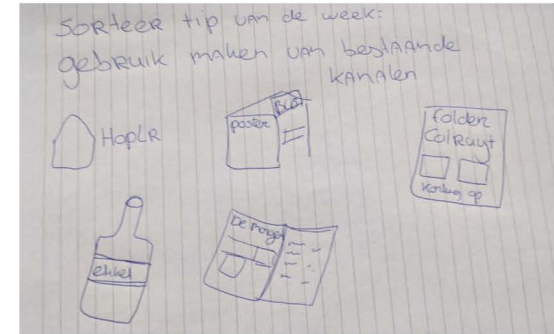 Sorteer tip van de week:
gebruik maken van bestaande
kanalen
HoplR
poster
Bus
folder
Colruyt
korting op
etiket
De Morgen